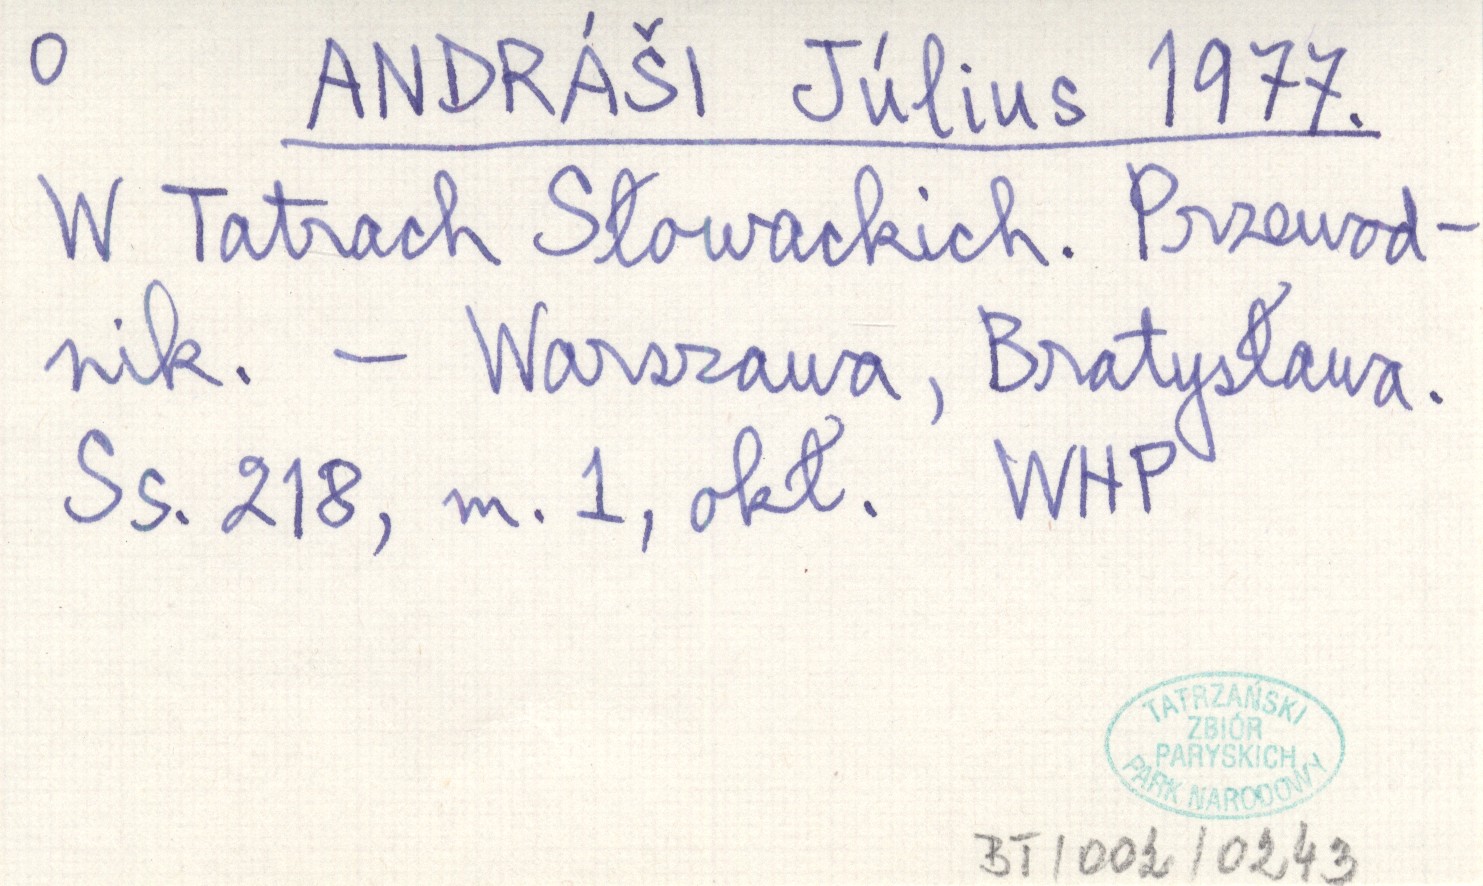 O ANDRÁŠI Július 1977.
W Tatrach Słowackich. Przewod-
nik. – Warszawa, Bratysława.
Ss. 218, m. 1, okł. WHP
TATRZAŃSKI
ZBIÓR
PARYSKICH
PARK NARODOWY
BT/002/0243